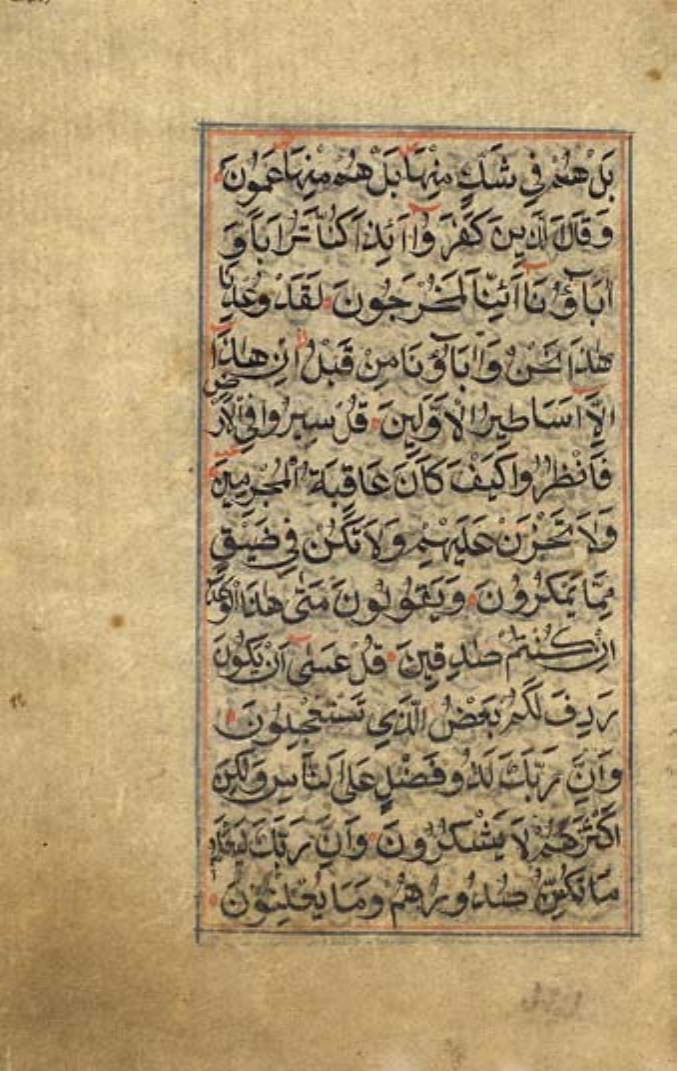 بَلْ هُمْ فِي شَكٍّ مِنْهَا بَلْ هُمْ مِنْهَا عَمُونَ
وَقَالَ الَّذِينَ كَفَرُوا أَئِذَا كُنَّا تُرَابًا وَ
اٰبَاؤُنَا أَئِنَّا لَمُخْرَجُونَ لَقَدْ وُعِدْنَا
هٰذَا نَحْنُ وَاٰبَاؤُنَا مِنْ قَبْلُ اِنْ هٰذَا
اِلَّا اَسَاطِيرُ الْاَوَّلِينَ قُلْ سِيرُوا فِي الْاَرْضِ
فَانْظُرُوا كَيْفَ كَانَ عَاقِبَةُ الْمُجْرِمِينَ
وَلَا تَحْزَنْ عَلَيْهِمْ وَلَا تَكُنْ فِي ضَيْقٍ
مِمَّا يَمْكُرُونَ وَيَقُولُونَ مَتٰى هٰذَا الْوَعْدُ
اِنْ كُنْتُمْ صٰدِقِينَ قُلْ عَسٰى اَنْ يَكُونَ
رَدِفَ لَكُمْ بَعْضُ الَّذِي تَسْتَعْجِلُونَ
وَاِنَّ رَبَّكَ لَذُو فَضْلٍ عَلَى النَّاسِ وَلٰكِنَّ
اَكْثَرَهُمْ لَا يَشْكُرُونَ وَاِنَّ رَبَّكَ لَيَعْلَمُ
مَا تُكِنُّ صُدُورُهُمْ وَمَا يُعْلِنُونَ